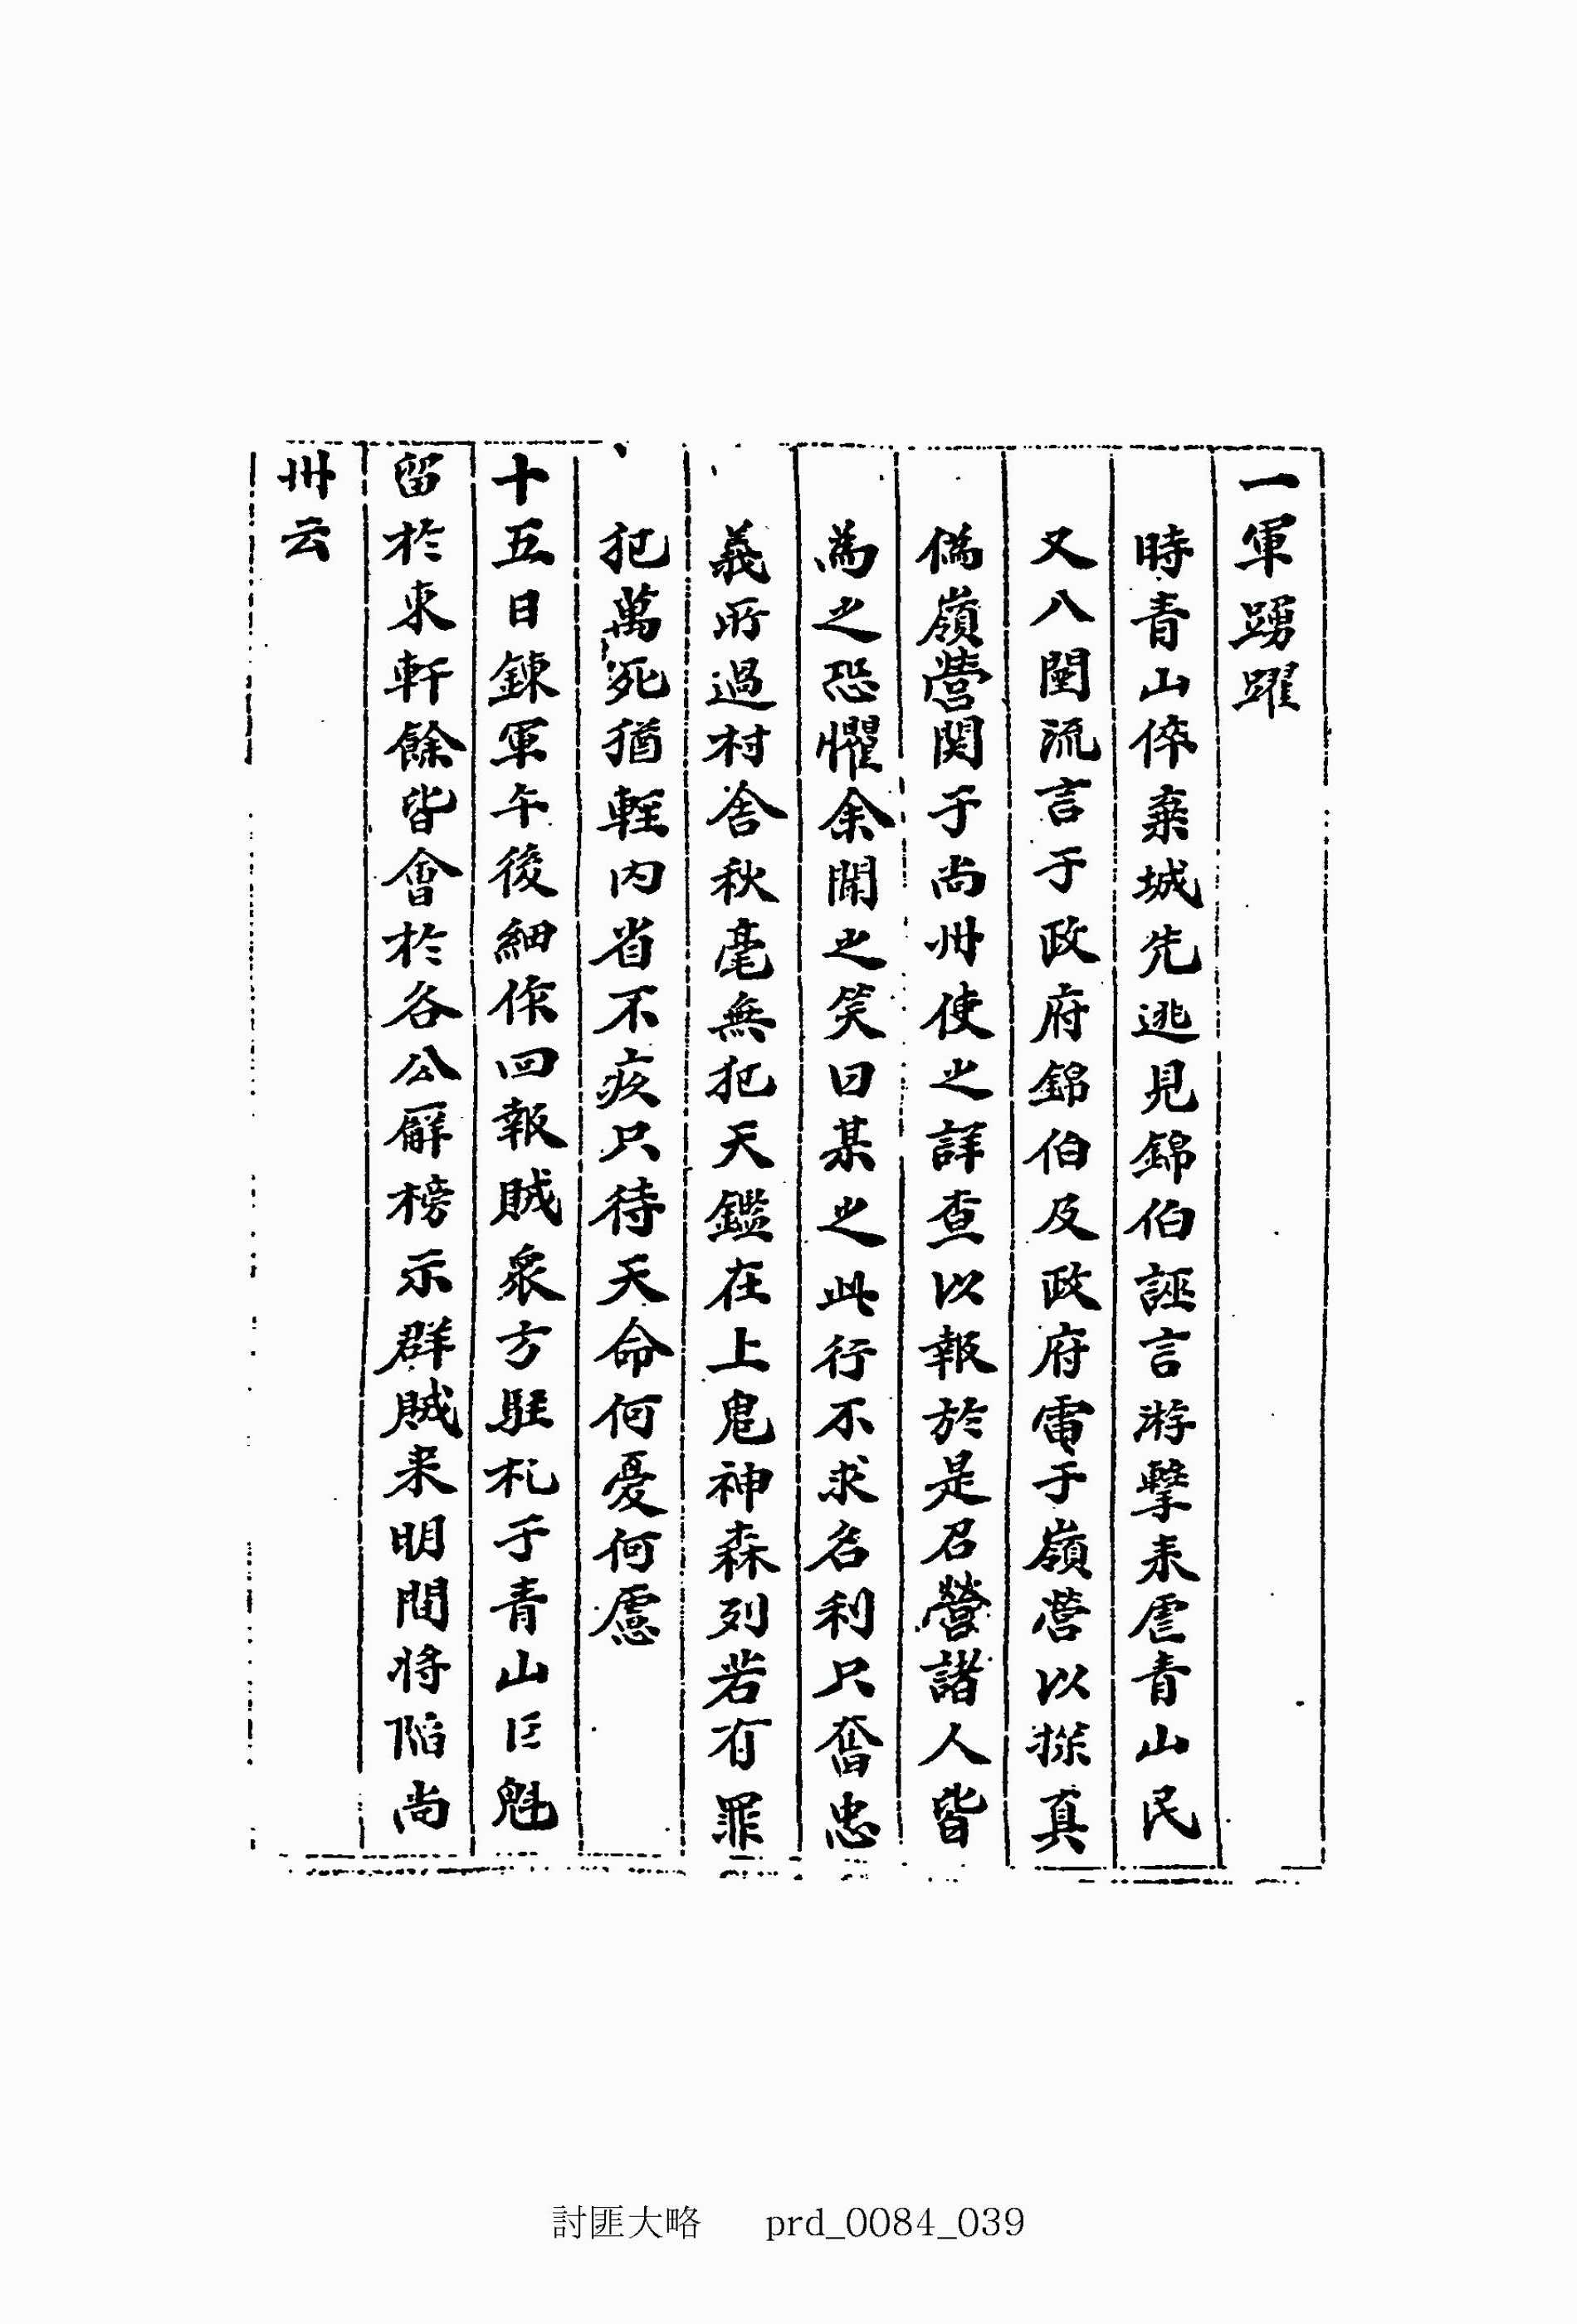 一軍踴躍
時青山倅棄城先逃見錦伯誣言游擊来虐青山民
又八閫流言于政府錦伯及政府電于嶺營以探真
偽嶺營関于尚州使之詳查以報於是召營諸人皆
為之恐懼余聞之笑曰某之此行不求名利只奮忠
義所過村舍秋毫無犯天鑑在上鬼神森列若有罪
犯萬死猶輕内省不疚只待天命何憂何慮
十五日鍊軍午後細作回報賊衆方駐札于青山巨魁
留於東軒餘皆會於各公廨榜示群賊来明間将陷尚
州云
討匪大略 prd_0084_039